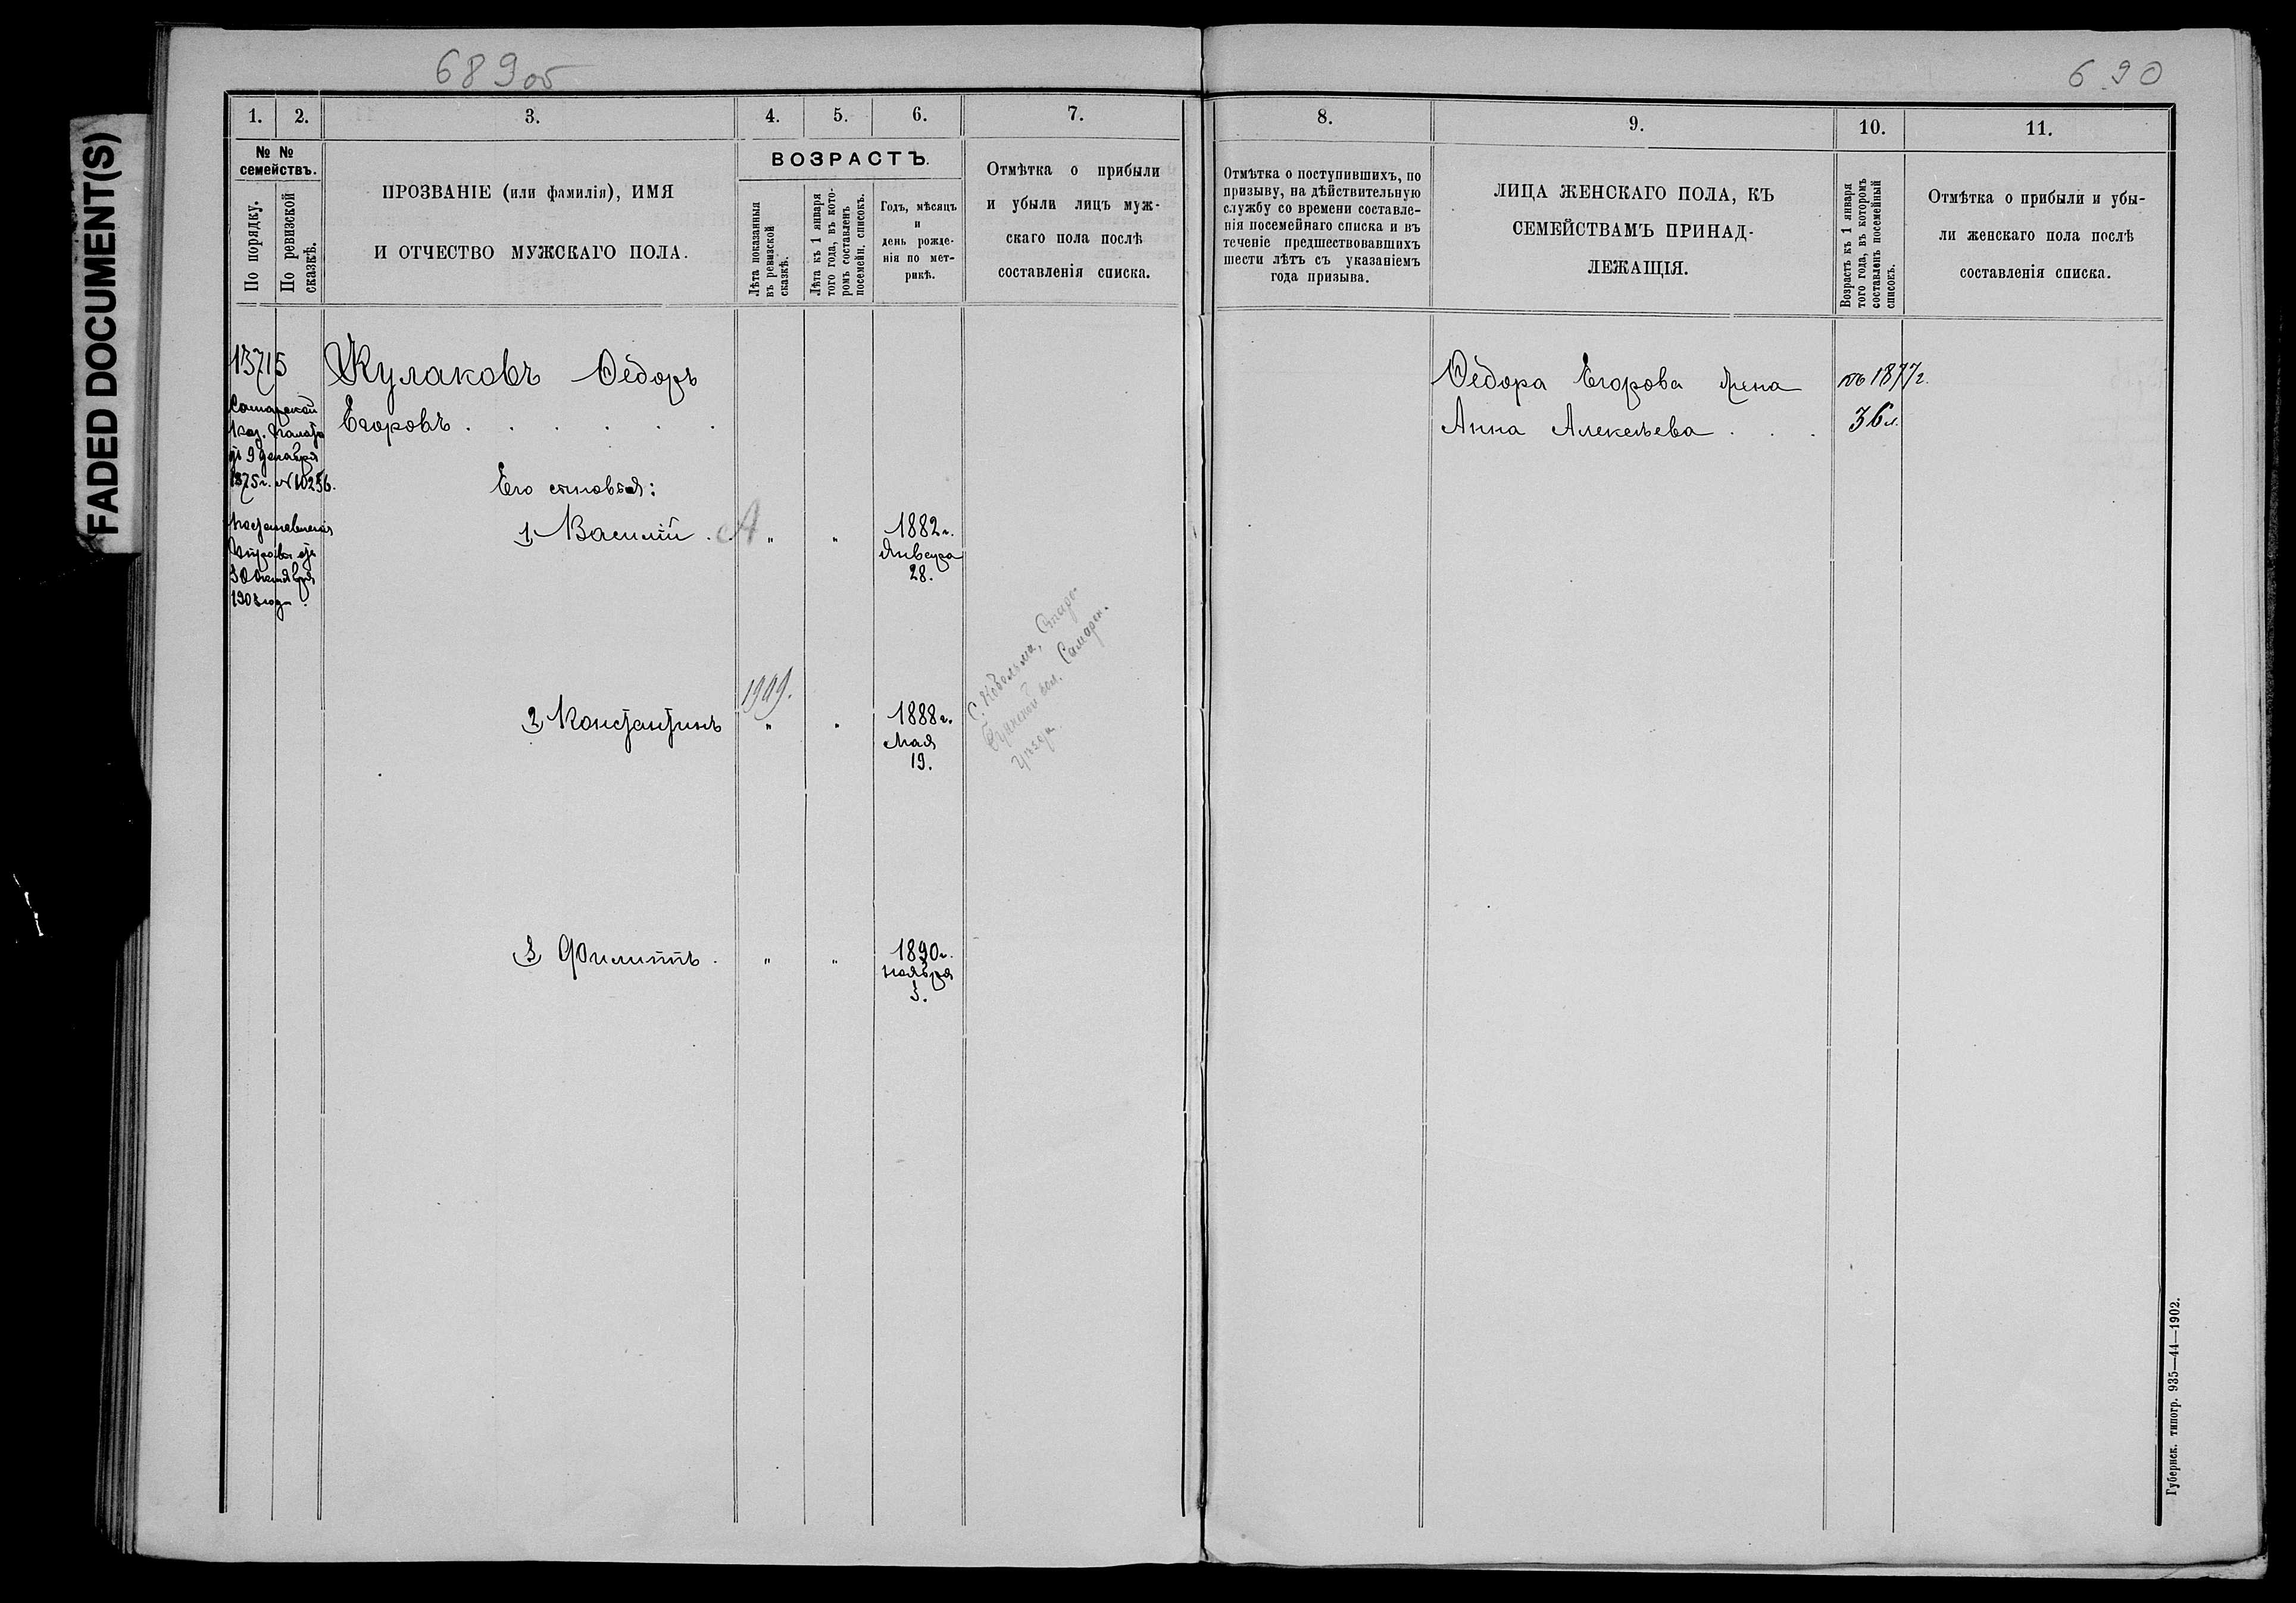 689об
690
FADED DOCUMENT(S)
1.
2.
3.
4.
5.
6.
7.
№ №
семействъ.
По порядку.
По ревизской
сказкѣ.
ПРОЗВАНІЕ (или фамилія), ИМЯ
И ОТЧЕСТВО МУЖСКАГО ПОЛА.
ВОЗРАСТЪ.
Лѣта показанныя
въ ревизской
сказкѣ.
Лѣта къ 1 января
того года, въ кото-
ромъ составленъ
посемейн. списокъ.
Годъ, мѣсяцъ
и
день рожде-
нія по мет-
рикѣ.
Отмѣтка о прибыли
и убыли лицъ муж-
скаго пола послѣ
составленія списка.
13715
Самарской
Каз. Палаты
9 декабря
1875г. № 10256.
Управы
30 Октября
Кулаковъ Ѳедоръ
Егоровъ . . . . . .
Его сыновья:
1 Василій . А " "
1882г.
Января
28.
1909.
2 Константинъ " "
1888г.
Мая
19.
Старо-
вол. Самарск.
уѣзда.
3 Филиппъ . " "
1890г.
ноября
8.
9.
10.
11.
Отмѣтка о поступившихъ, по
призыву, на дѣйствительную
службу со времени составле-
нія посемейнаго списка и въ
теченіе предшествовавшихъ
шести лѣтъ съ указаніемъ
года призыва.
ЛИЦА ЖЕНСКАГО ПОЛА, КЪ
СЕМЕЙСТВАМЪ ПРИНАД-
ЛЕЖАЩІЯ.
Возрастъ къ 1 января
того года, въ которомъ
составленъ посемейный
списокъ.
Отмѣтка о прибыли и убы-
ли женскаго пола послѣ
составленія списка.
Ѳедора Егорова жена
въ 1877г.
Анна Алексѣева . . .
36л.
Губернск. типогр. 935—44—1902.